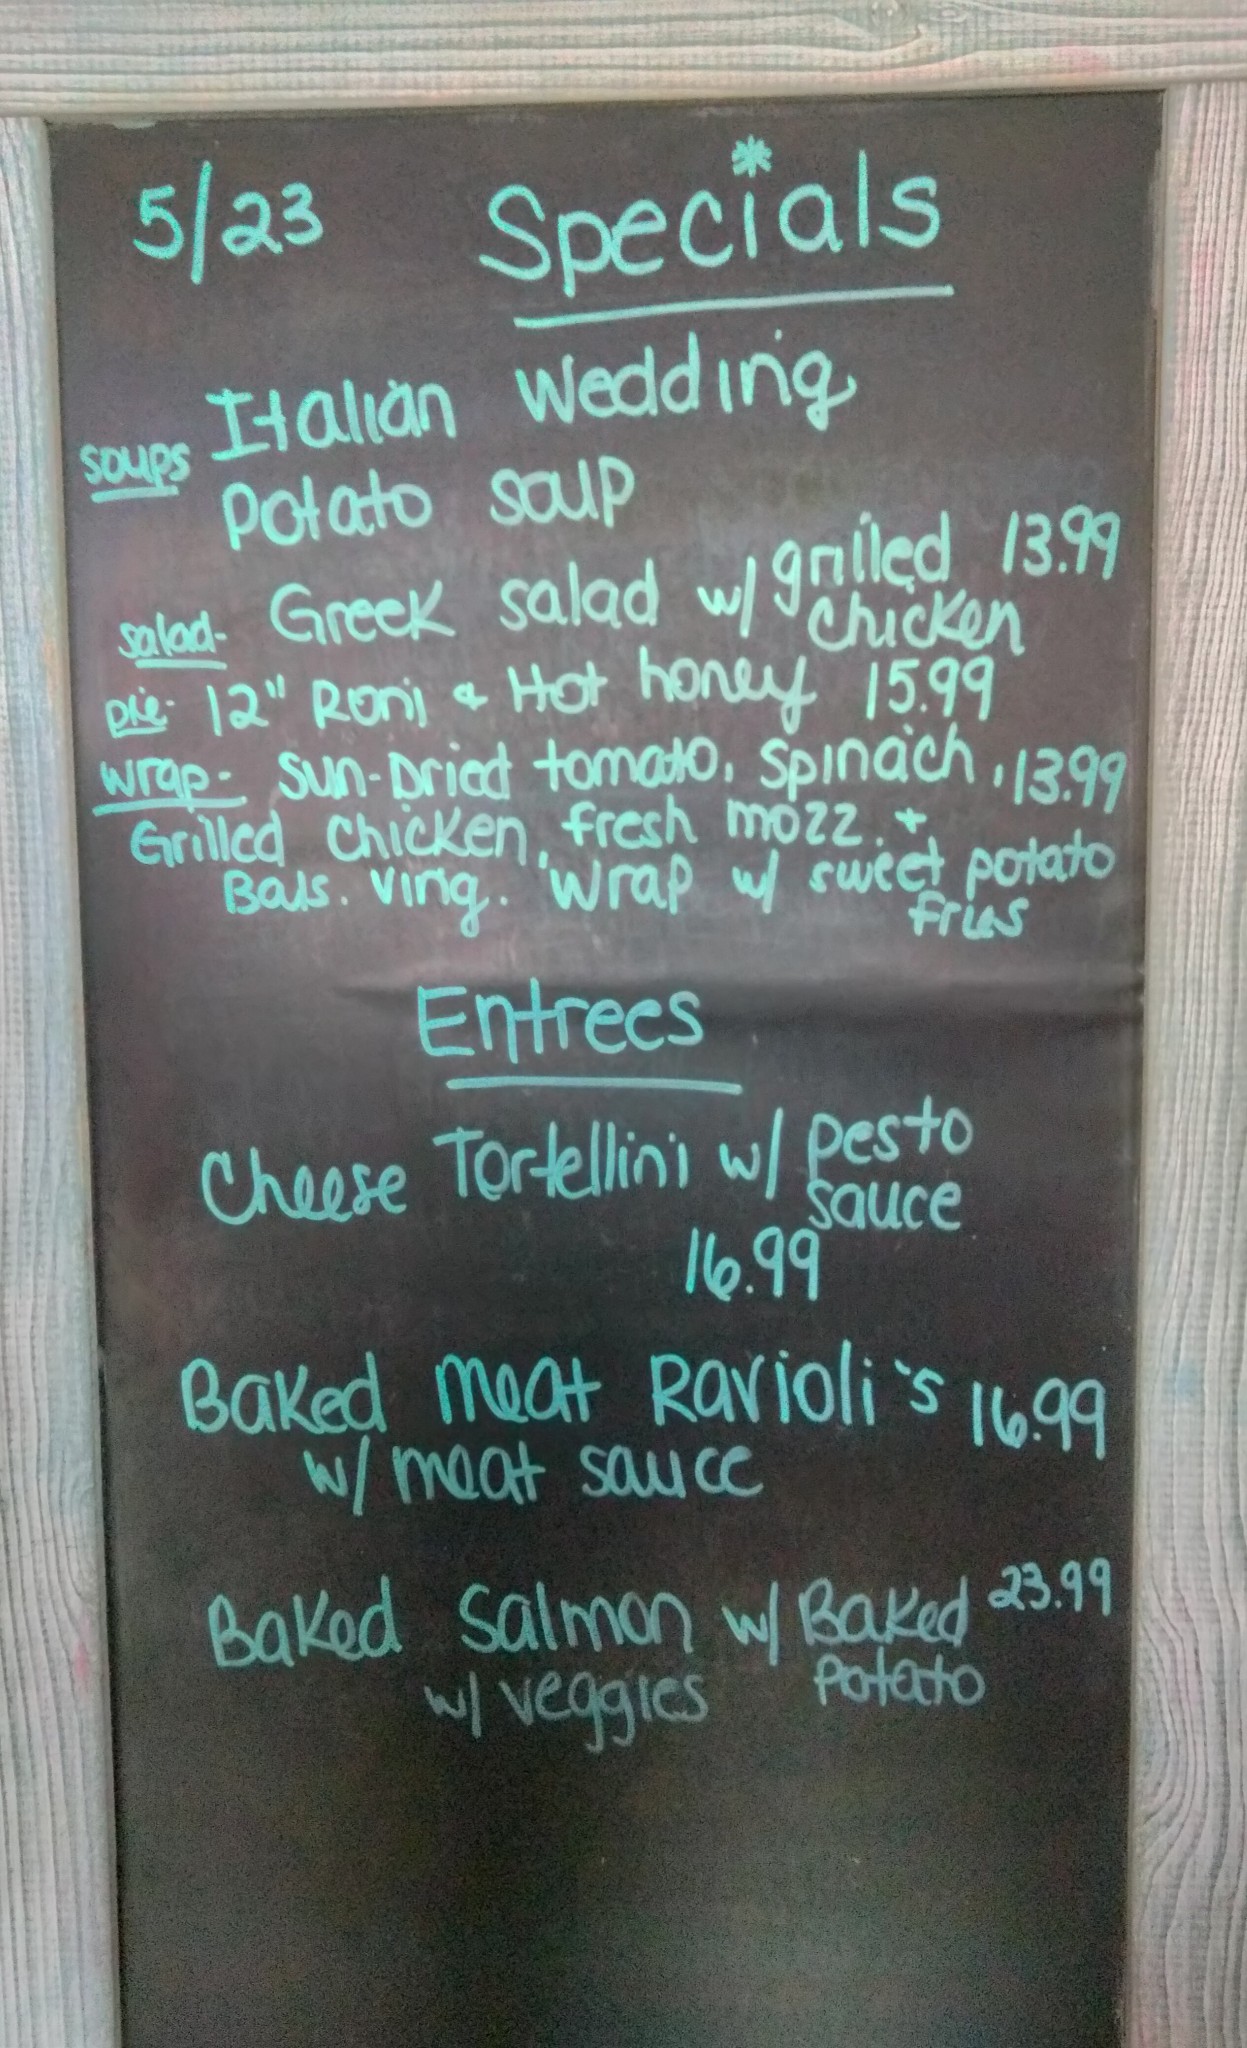 5/23 Specials
soups Italian Wedding
Potato soup
salad- Greek salad w/ grilled 13.99
chicken
pie- 12" Roni & Hot honey 15.99
wrap- Sun-Dried tomato, spinach, 13.99
Grilled chicken, fresh mozz. +
Bals. ving. wrap w/ sweet potato
fries
Entrees
Cheese Tortellini w/ pesto
sauce
16.99
Baked meat Ravioli's 16.99
w/ meat sauce
Baked Salmon w/ Baked 23.99
w/ veggies potato